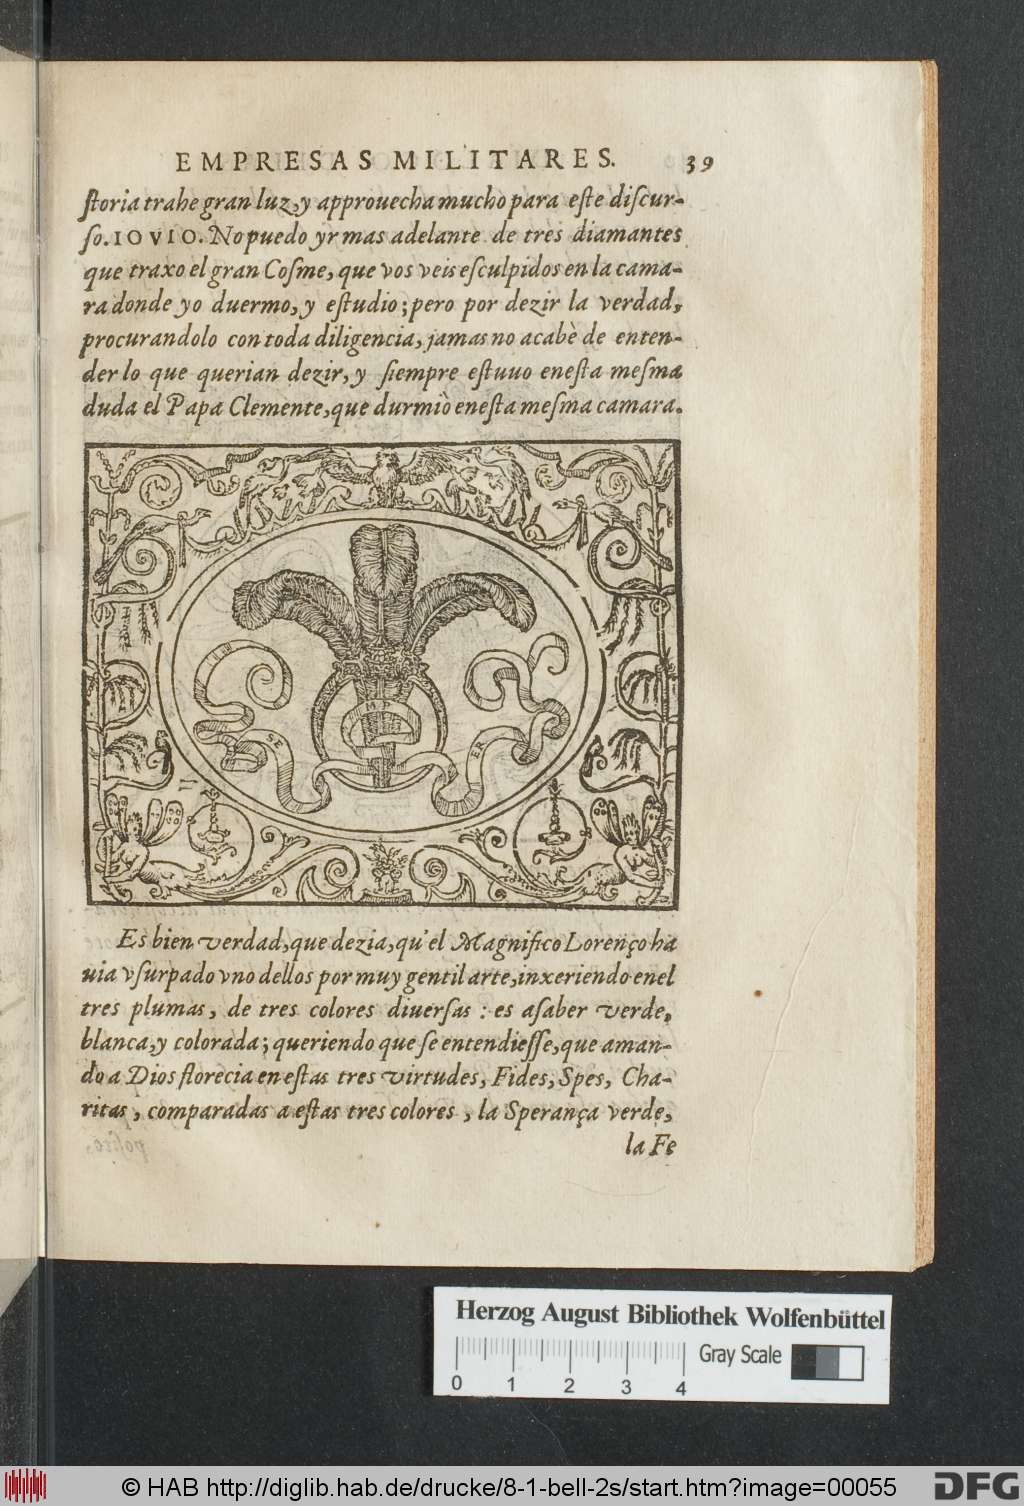 EMPRESAS MILITARES. 39
ſtoria trahe gran luz, y approuecha mucho para eſte diſcur-
ſo. IOVIO. No puedo yr mas adelante de tres diamantes
que traxo el gran Coſme, que vos veis eſculpidos en la cama-
ra donde yo duermo, y eſtudio; pero por dezir la verdad,
procurandolo con toda diligencia, jamas no acabè de enten-
der lo que querian dezir, y ſiempre eſtuuo eneſta meſma
duda el Papa Clemente, que durmiò eneſta meſma camara.
SE
MP
ER
Es bien verdad, que dezia, qu'el Magnifico Lorenço ha
uia vſurpado vno dellos por muy gentil arte, inxeriendo enel
tres plumas, de tres colores diuerſas: es aſaber verde,
blanca, y colorada; queriendo que ſe entendieſſe, que aman-
do a Dios florecia en eſtas tres virtudes, Fides, Spes, Cha-
ritas, comparadas a eſtas tres colores, la Sperança verde,
la Fe
Herzog August Bibliothek Wolfenbüttel
Gray Scale
0 1 2 3 4
© HAB http://diglib.hab.de/drucke/8-1-bell-2s/start.htm?image=00055
DFG